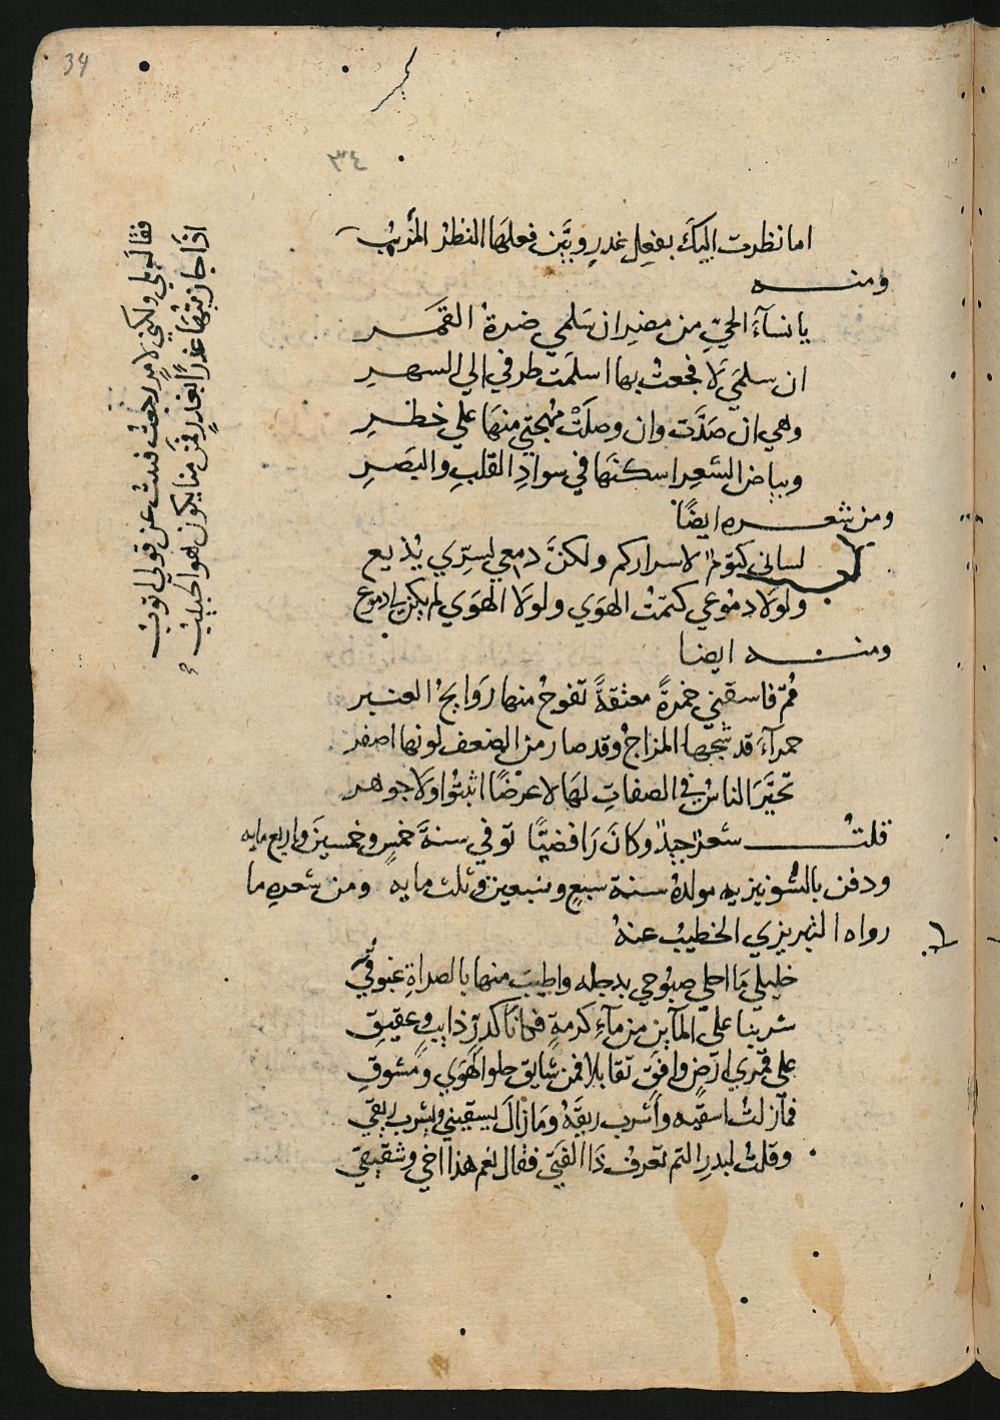 34
٣٤
اما نظرت اليكَ بفعلِ غدرٍ وبيَّن فعلهَا النظرُ المُريبُ
ومنه
يا نسآءَ الحيّ من مضرٍ ان سَلمي ضرةُ القمَر
ان سلمَي لَا فجعتُ بها اسلمَت طرفي الي السهرِ
وهي ان صَدَّت وان وصلَتْ مهجتي منهَا علي خطرِ
وبياض الشعرِ اسكنهَا في سوادِ القلبِ والبَصَرِ
ومن شعره ايضًا
لساني كتومٌ لاسراركم ولكنَّ دمعي لسِرّي يُذيع
ولوَلا دمُوعي كتمتُ الهوَي ولولَا الهَوَي لم يكن لي دموع
ومنه ايضا
قُمْ فاسقني خمرةً معتقةً تفوحُ منها رَوَايحُ العنبر
حمرآءَ قد شجها المزاجُ وقد صار من الضعف لونها اصفر
تحيَّرَ الناسُ في الصفاتِ لهَا لا عرَضًا اثبتُوا ولَا جوهر
قلتُ شعرٌ جيدٌ وكانَ رَافضيًّا توفي سنةَ خمسٍ وخمسينَ واربع مايه
ودفن بالشونيزيه مولدهُ سنة سبعٍ وسبعين وثلث مايه ومن شعرهِ ما
رواه التبريزي الخطيبُ عنهُ
خليليَّ مَا احلي صبُوحي بدجله واطيبَ منها بالصراةِ غبُوقي
شربنا علي المآين من مآءِ كرمةٍ فكانا كدرٍّ ذايبٍ وعقيقِ
علي قمَري ارَضٍ وافقٍ تقابلا فمن شايق حلو الهَوَي ومَشوقِ
فمَا زلتُ اسقيه وأشرب ريقَهُ ومَا زالَ يسقيني ويشرب ريقي
وقلتُ لبدرِ التم تعرفُ ذَا الفتَي فقال نعم هذا اخي وشقيقي
فقالَ وَيلي ولكني لامرٍ رجعتُ فبتُ عن قولي اتوبُ
اذَا جازيتهَا غدرًا بغدرٍ فمَن منا يكون هو الحبيبُ